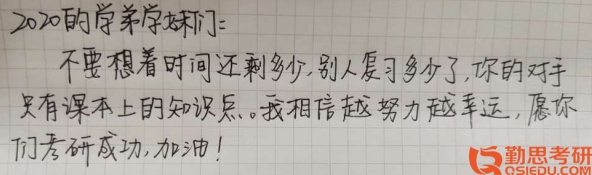 2020的学弟学妹们：
不要想着时间还剩多少,别人复习多少了,你的对手
只有课本上的知识点。我相信越努力越幸运,愿你
们考研成功,加油!
勤思考研
QSIEDU.COM